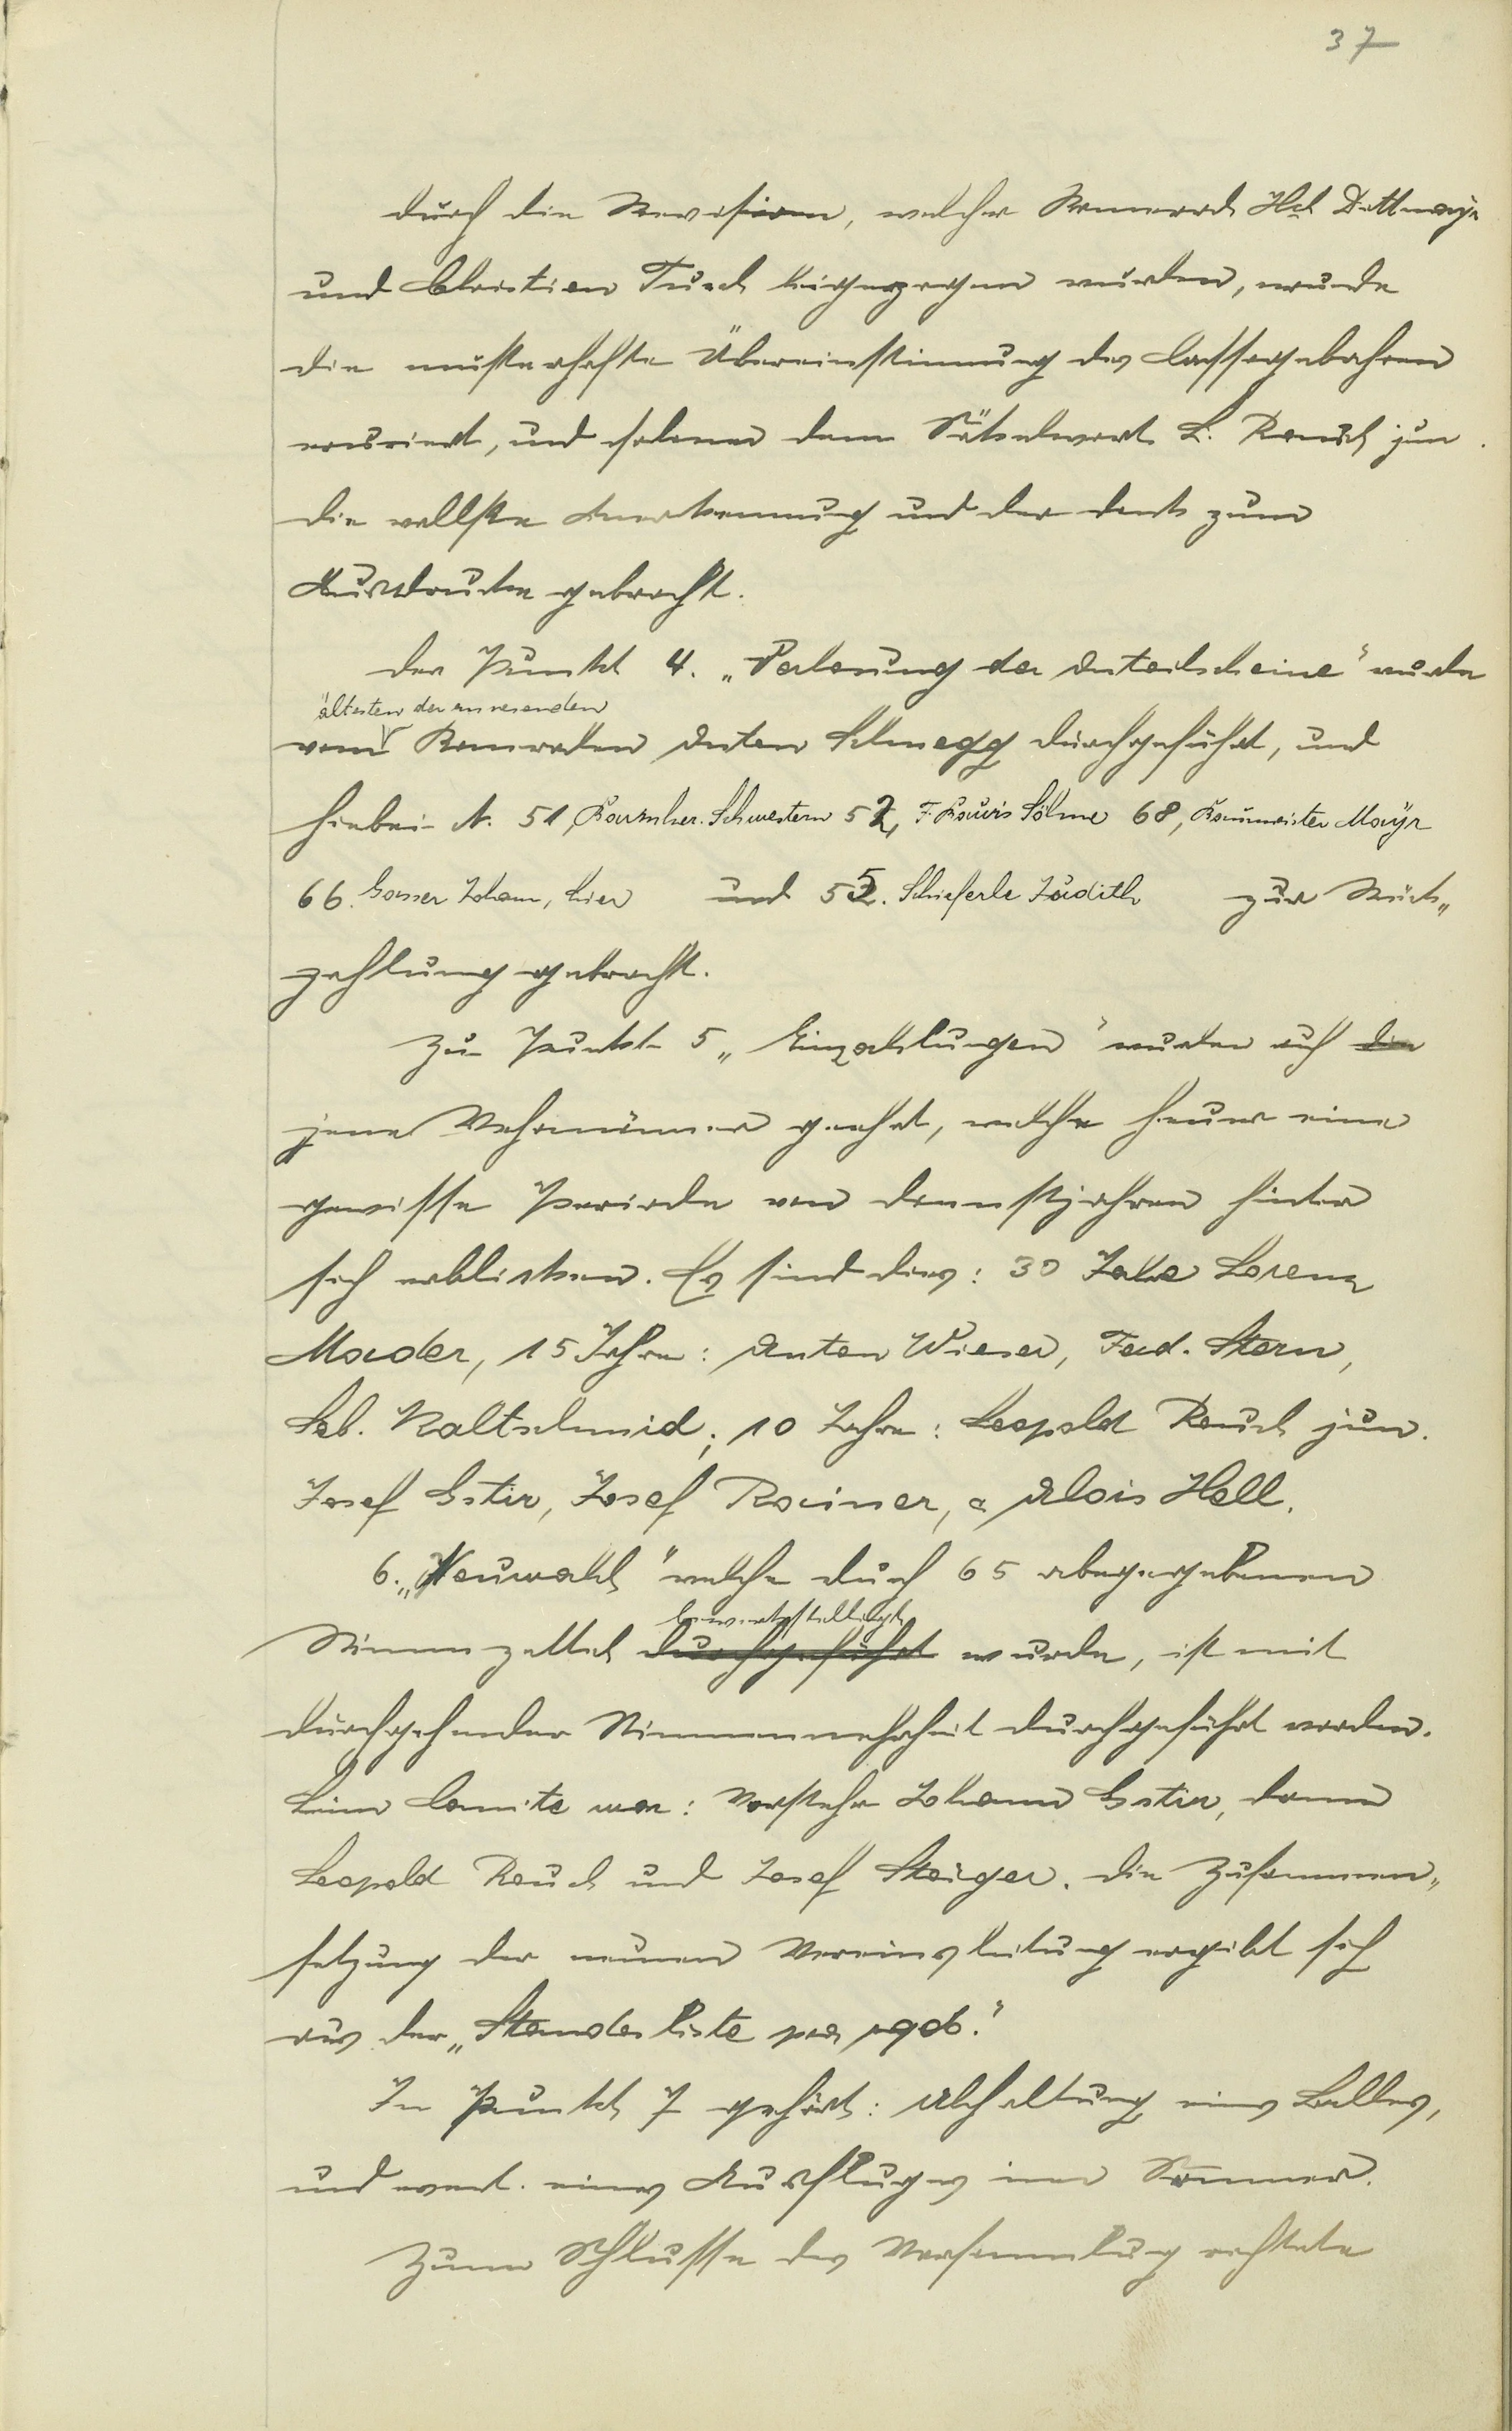 37
durch die Revision, welcher Kamerad Hch Dettmayr
und Christian Tusch beigezogen wurden, wurde
die musterhafte Übereinstimmung des Cassagebahren
und dem Säckelwart L. Rauch jun.
die vollste Anerkennung und der Dank zum
Ausdrucke gebracht.
Der Punkt 4. „Verlosung der Anteilscheine" wurde
ältesten der anwesenden
vom Kameraden Anton Schnegg durchgeführt, und
hiebei N. 51, Barmher. Schwestern 52, F. Rauch's Söhne 68, Baumeister Mayr
66. Gasser Johann, hier und 55. Schieferle Judith zur Rück„
zahlung gebracht.
Zu Punkt 5 „Einzahlungen" wurden auch die
jene Wehrmänner geehrt, welche heuer eine
gewisse Periode von Dienstjahren hinter
sich erblicken. Es sind dies: 30 Jahre Lorenz
Mader, 15 Jahre: Anton Wieser, Ferd. Stern,
Seb. Kaltschmid; 10 Jahre: Leopold Rauch jun.
Josef Gstir, Josef Rainer, & Alois Hell.
6. „Neuwahl" welche durch 65 abgegebenen
bewerkstelligt
Stimmzettel durchgeführt wurde, ist mit
durchgehender Stimmenmehrheit durchgeführt worden.
Beim Comite war: Vorsteher Johann Gstir, dann
Leopold Rauch und Josef Staiger. Die Zusammen„
setzung der neuen Vereinsleitung ergibt sich
aus der „Standesliste pro 1906."
In Punkt 7 gehört: Abhaltung eines Balles,
und event. eines Ausfluges im Sommer.
Zum Schlusse der Versammlung richtete